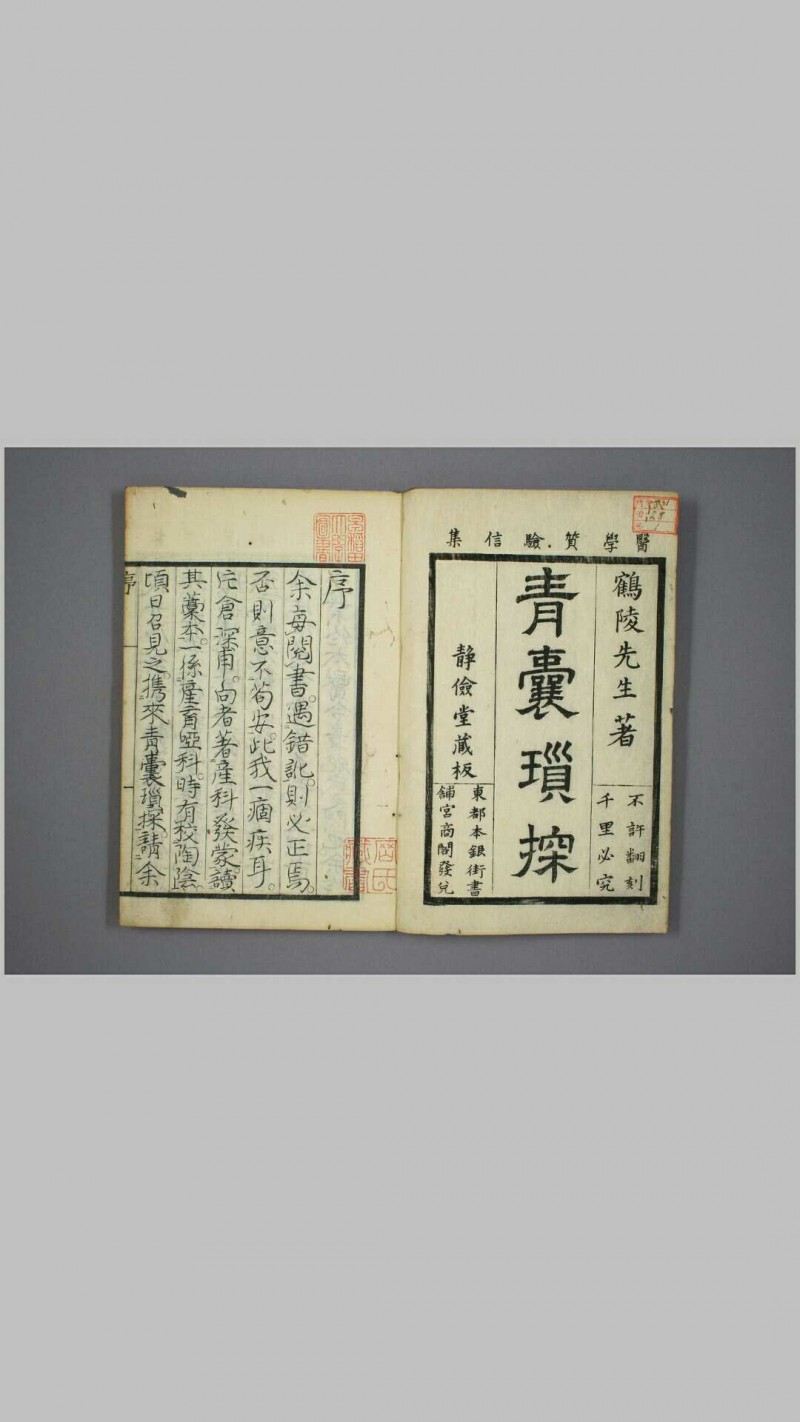 醫學質驗信集
鶴陵先生著
不許翻刻
千里必究
青囊瑣探
靜儉�藏板
東都本銀街書
舖宮商閣發兌
序
余每閱書。遇錯訛。則必正焉。
否則意不苟安。此我一痼疾耳。
倉深甫。向者著產科發蒙。讀
其藁本。一係產育啞科。時有校陶陰
頃日召見之。携來青囊瑣探。請余
序